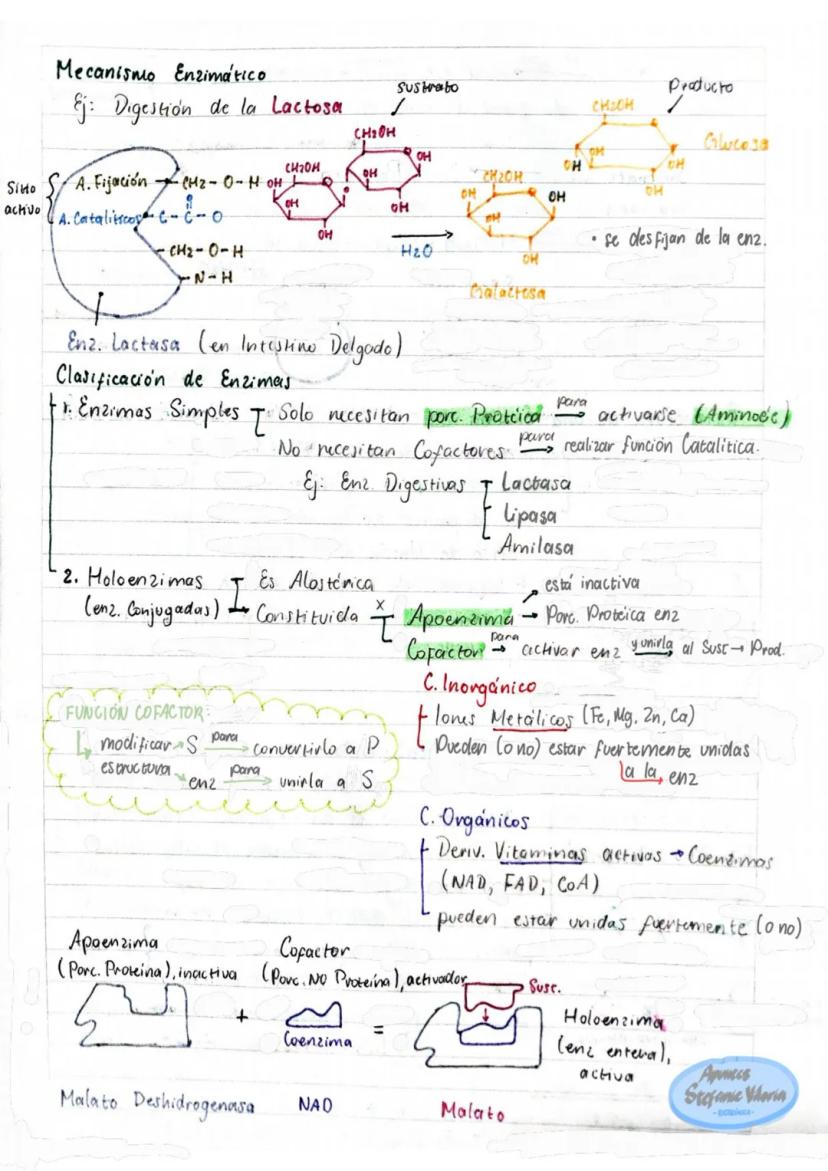 Mecanismo Enzimático
Ej: Digestión de la Lactosa
sustrato
Producto
CH2OH
Glucosa
OH
OH
OH
CH2OH
OH
OH
OH
CH2OH
OH
OH
OH
CH2OH
OH
OH
OH
OH
Galactosa
Sitio activo
A. Fijación → CH2 - O - H
A. Catalíticos C - C - O
O
CH2 - O - H
N - H
H2O
• se desfijan de la enz.
Enz. Lactasa (en Intestino Delgado)
Clasificación de Enzimas
1. Enzimas Simples
Solo necesitan porc. Protéica para → activarse (Aminoác)
No necesitan Cofactores para → realizar función Catalítica.
Ej: Enz. Digestivas
Lactasa
Lipasa
Amilasa
2. Holoenzimas
(enz. Conjugadas)
Es Alostérica
Constituida x
Apoenzima
→ está inactiva
→ Porc. Protéica enz
Cofactor para → activar enz y unirla → al Susc → Prod.
C. Inorgánico
Iones Metálicos (Fe, Mg, Zn, Ca)
Pueden (o no) estar fuertemente unidas
a la enz
FUNCIÓN COFACTOR:
modificar → S para → convertirlo a P
estructura → enz para → unirla a S
C. Orgánicos
Deriv. Vitaminas activas → Coenzimas
(NAD, FAD, CoA)
pueden estar unidas fuertemente (o no)
Apoenzima
(Porc. Proteína), inactiva
Cofactor
(Porc. NO Proteína), activador
Susc.
+
Coenzima
=
Holoenzima
(enz entera),
activa
Malato Deshidrogenasa
NAD
Malato
Apuntes
Stefanie Viloria